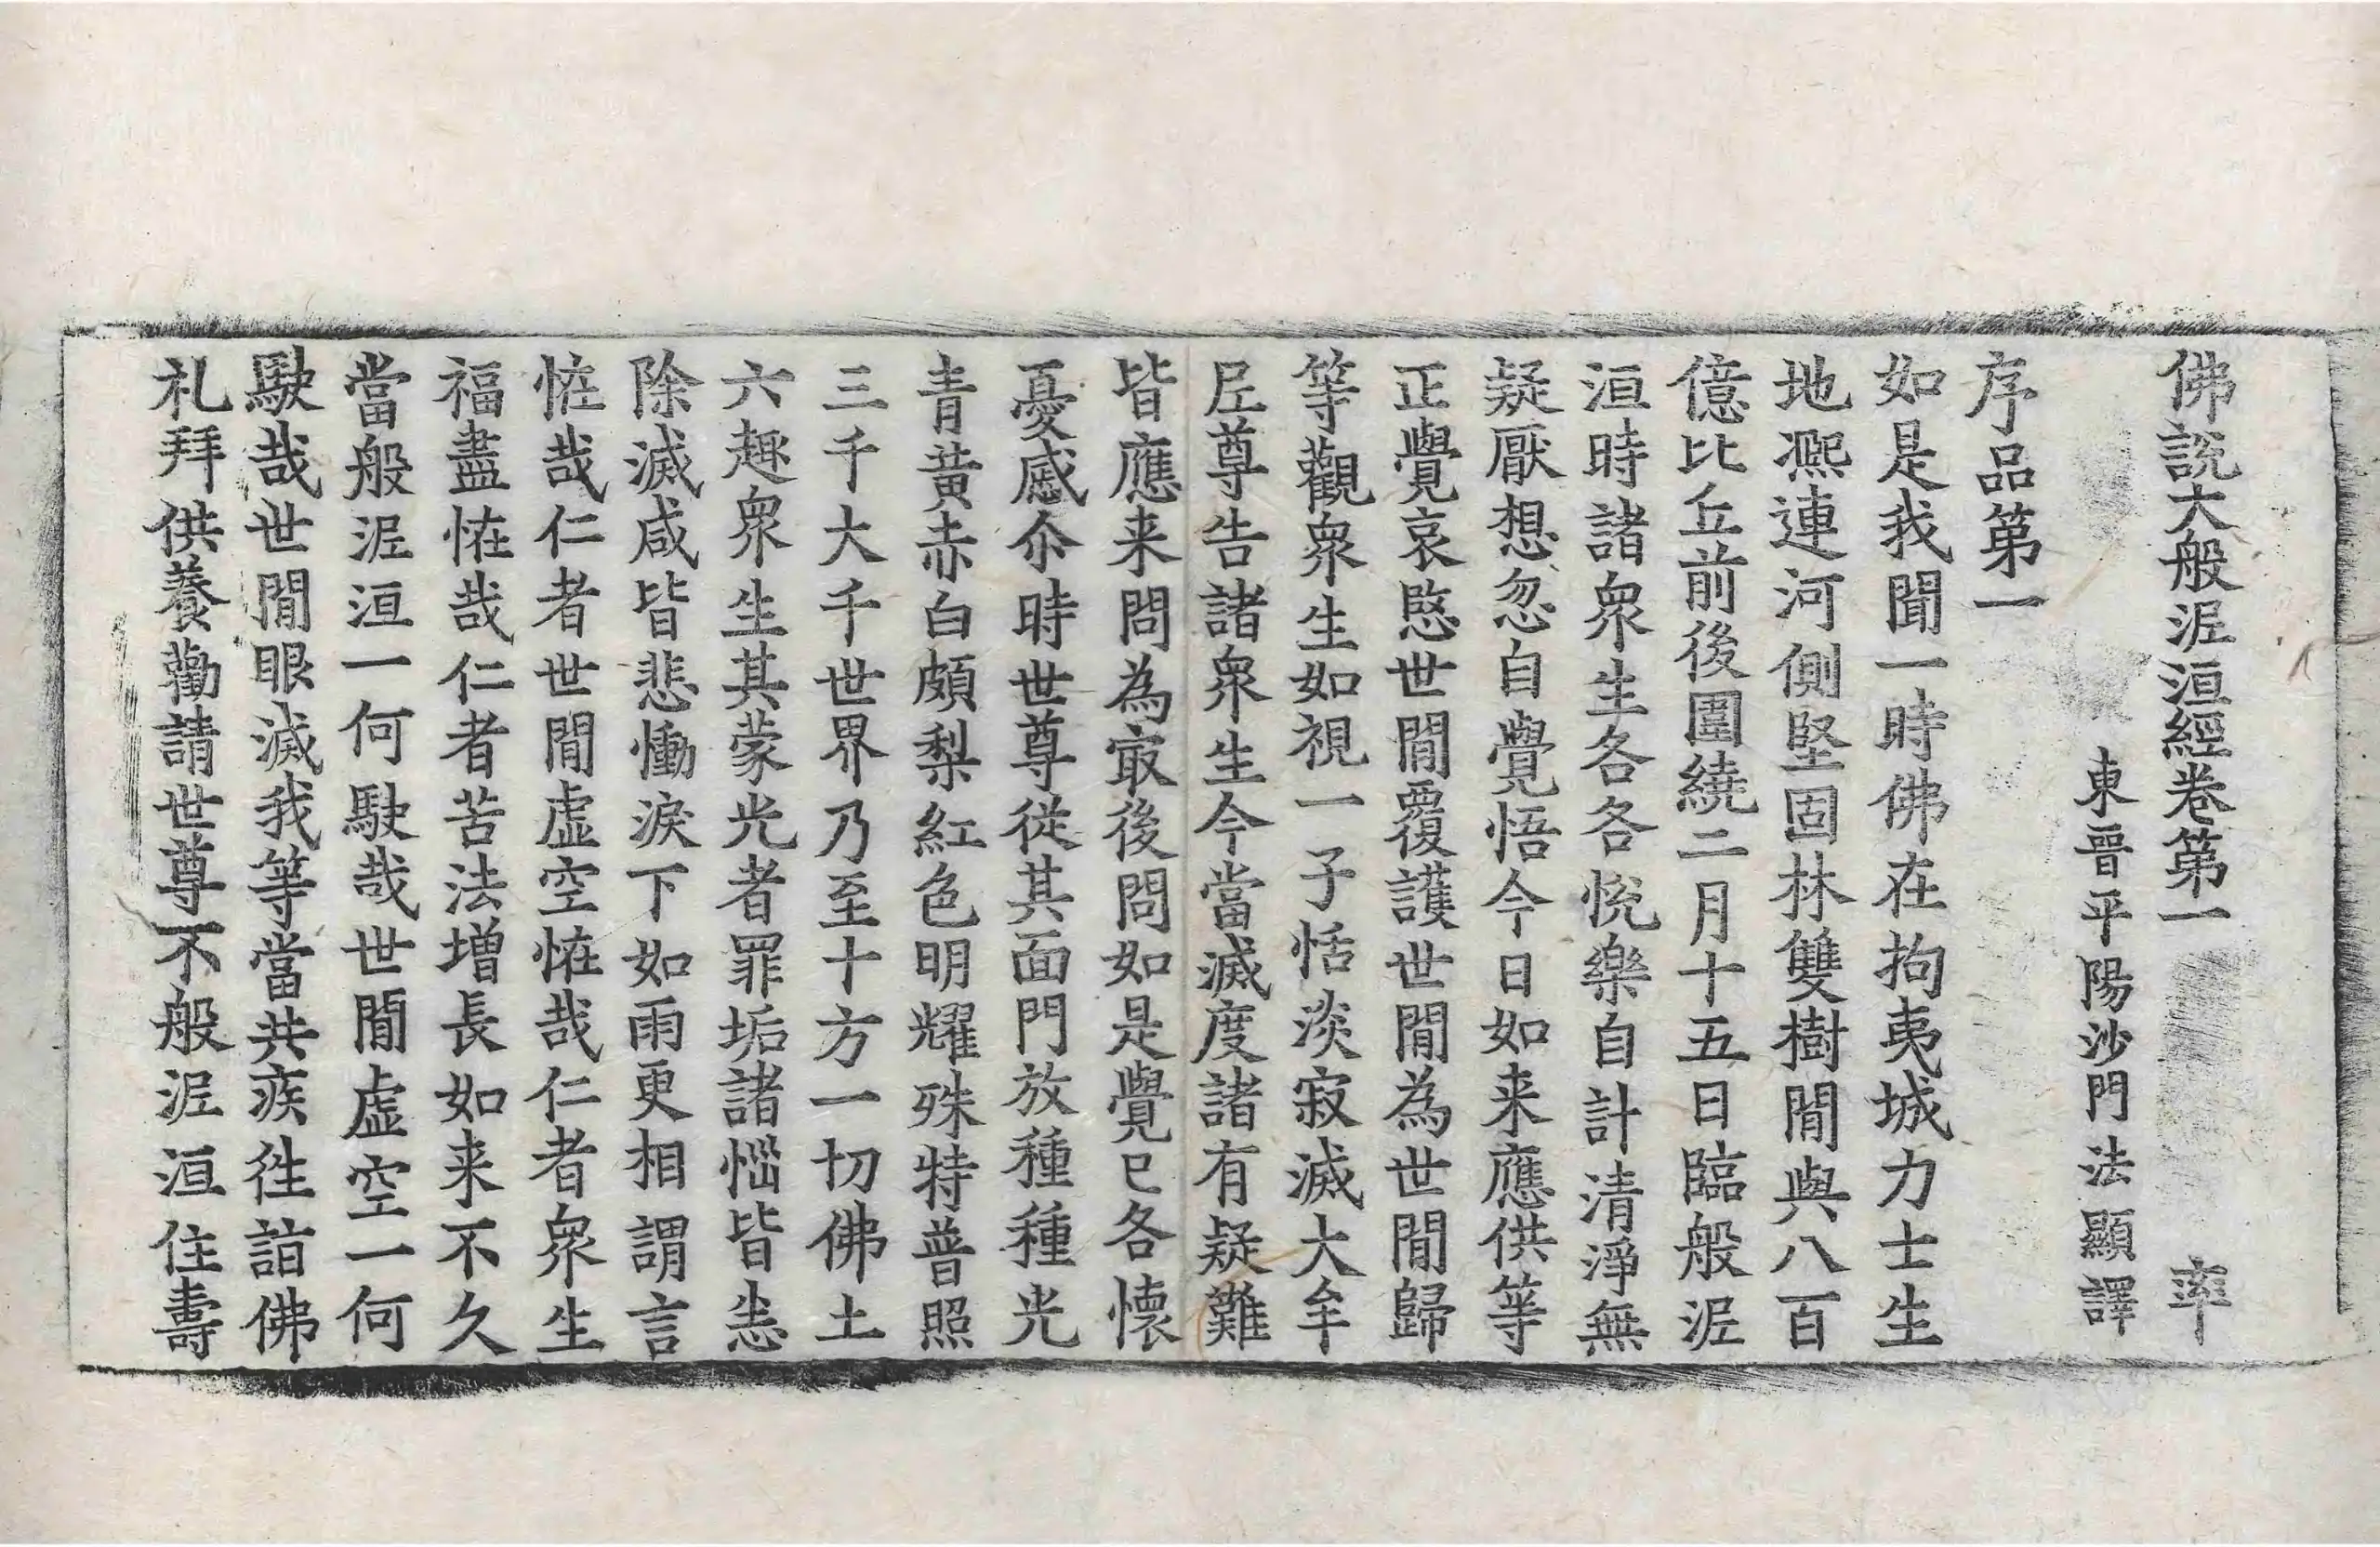 佛說大般泥洹經卷第一 率
東晉平陽沙門法顯譯
序品第一
如是我聞一時佛在拘夷城力士生
地熈連河側堅固林雙樹閒與八百
億比丘前後圍繞二月十五日臨般泥
洹時諸衆生各各悅樂自計清淨無
疑厭想忽自覺悟今日如来應供等
正覺哀愍世閒覆護世閒為世閒歸
等觀衆生如視一子恬淡寂滅大牟
尼尊告諸衆生今當滅度諸有疑難
皆應来問為㝡後問如是覺已各懷
憂慼尒時世尊從其面門放種種光
青黃赤白頗梨紅色明耀殊特普照
三千大千世界乃至十方一切佛土
六趣衆生其蒙光者罪垢諸惱皆悉
除滅咸皆悲慟淚下如雨更相謂言
恠哉仁者世閒虛空恠哉仁者衆生
福盡恠哉仁者苦法增長如来不久
當般泥洹一何駛哉世閒虛空一何
駛哉世閒眼滅我等當共疾徃詣佛
礼拜供養勸請世尊不般泥洹住壽